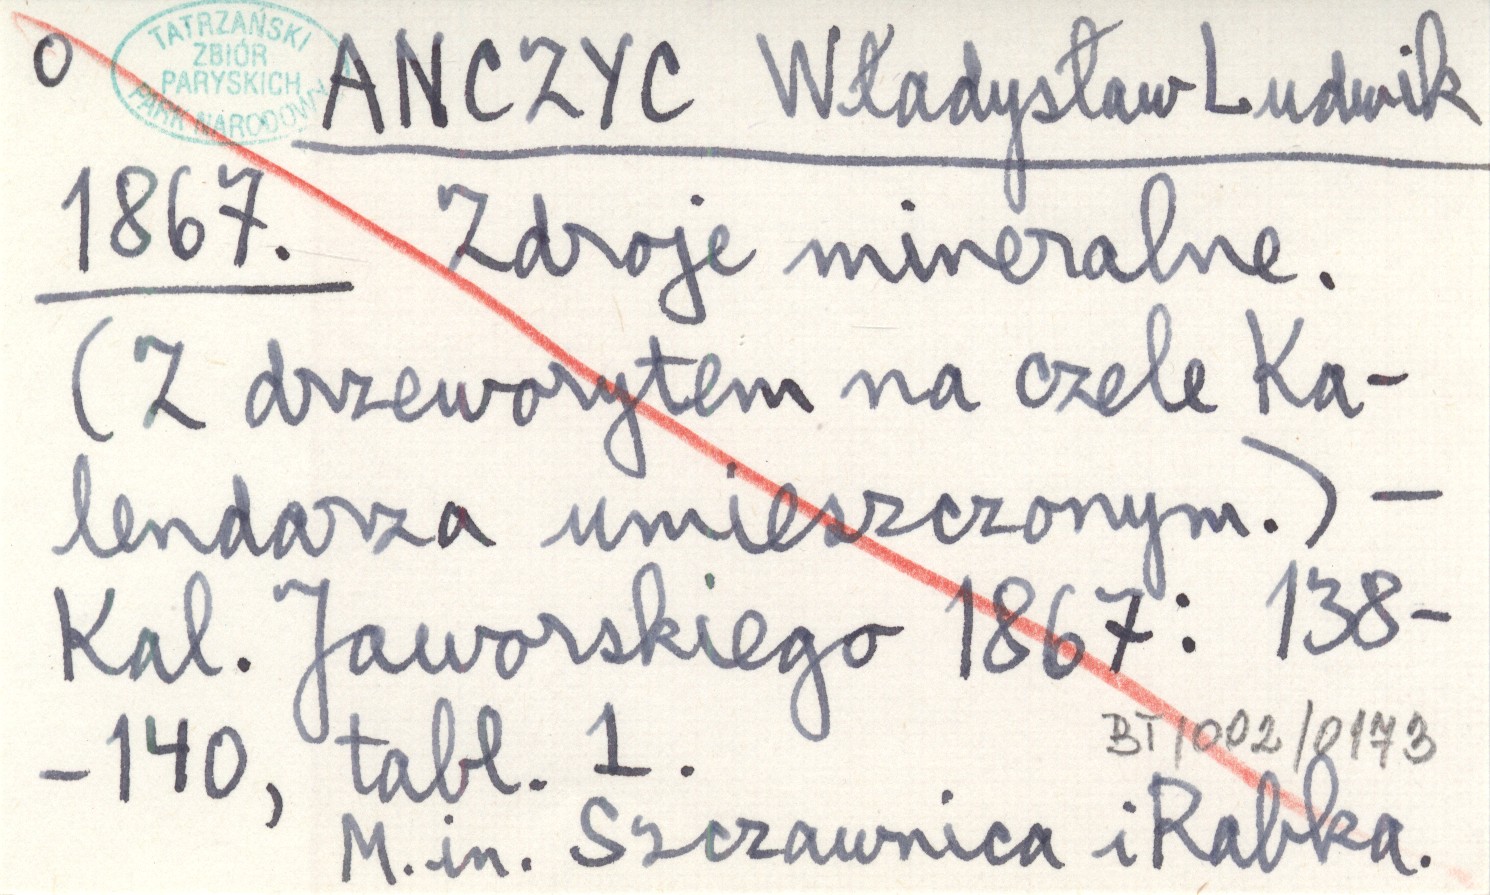 o
TATRZAŃSKI
ZBIÓR
PARYSKICH
PARK NARODOWY
ANCZYC Władysław Ludwik
1867. Zdroje mineralne.
(Z drzeworytem na czele Ka-
lendarza umieszczonym.) —
Kal. Jaworskiego 1867: 138-
-140, tabl. 1.
BT/002/0173
M. in. Szczawnica i Rabka.